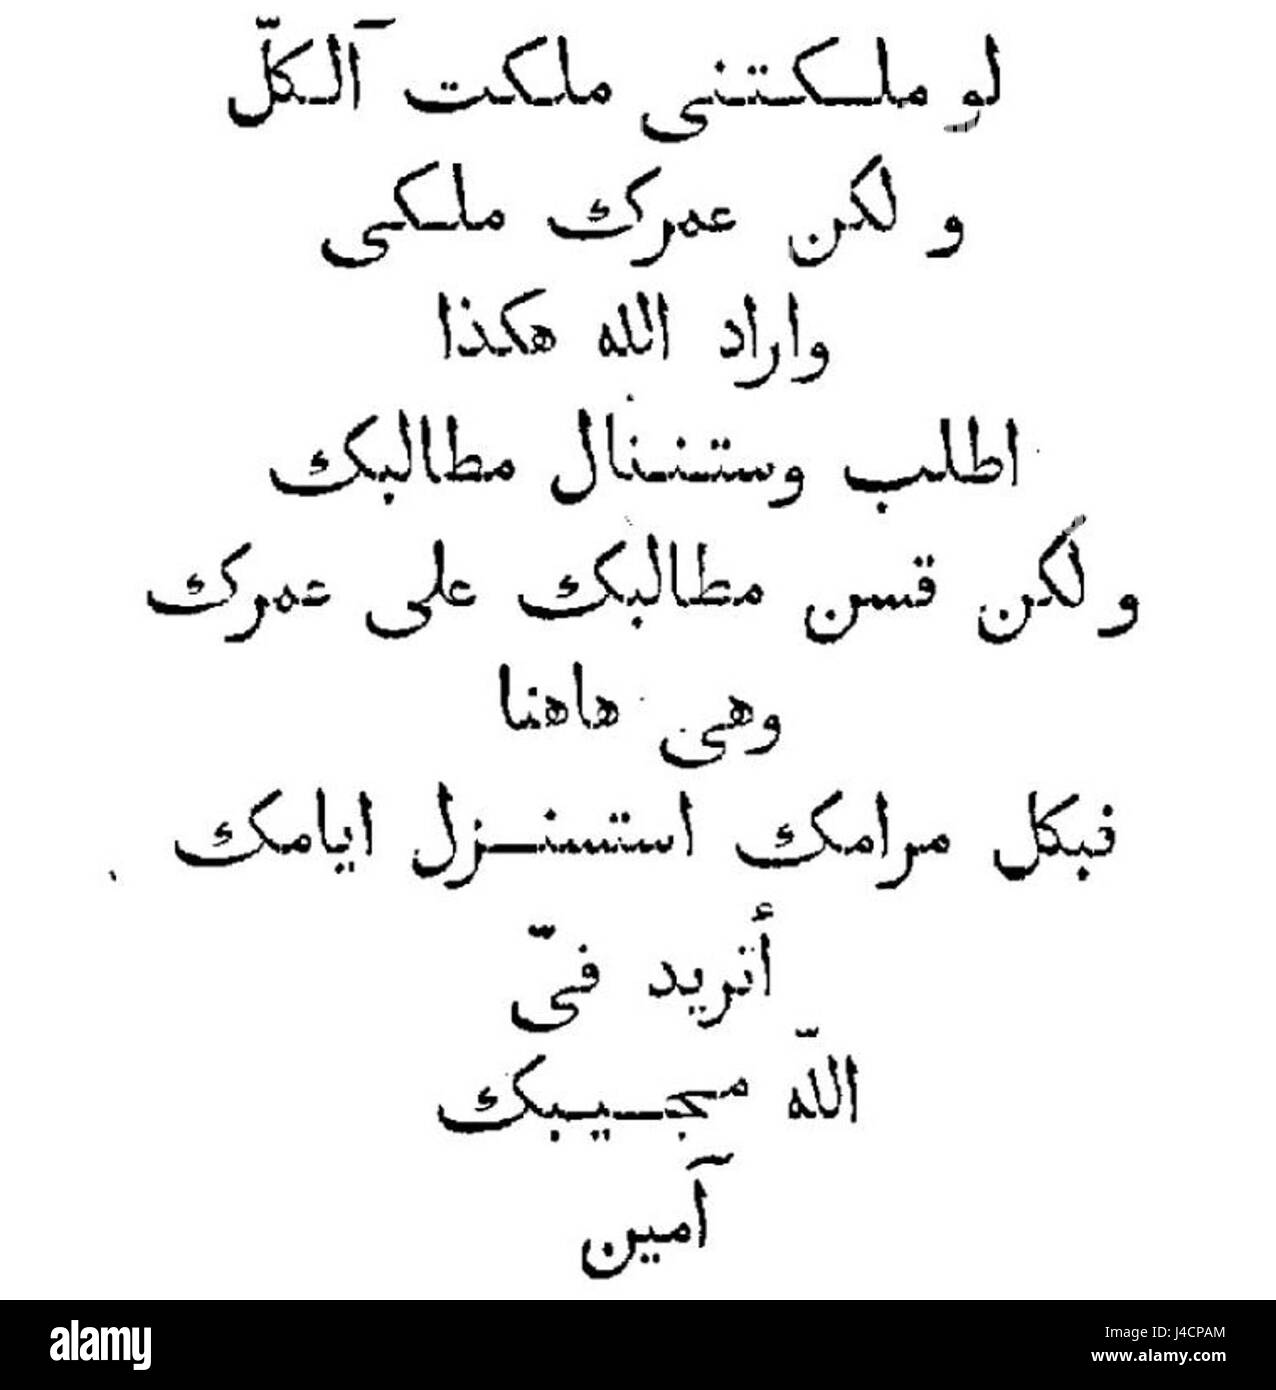 لو ملكتنى ملكت آلكلّ
و لكن عمرك ملكى
واراد الله هكذا
اطلب وستنال مطالبك
ولكن قسن مطالبك على عمرك
وهى هاهنا
فبكل مرامك استنزل ايامك
أتريد فىّ
اللّه مجيبك
آمين
alamy
alamy
Image ID: J4CPAM
www.alamy.com